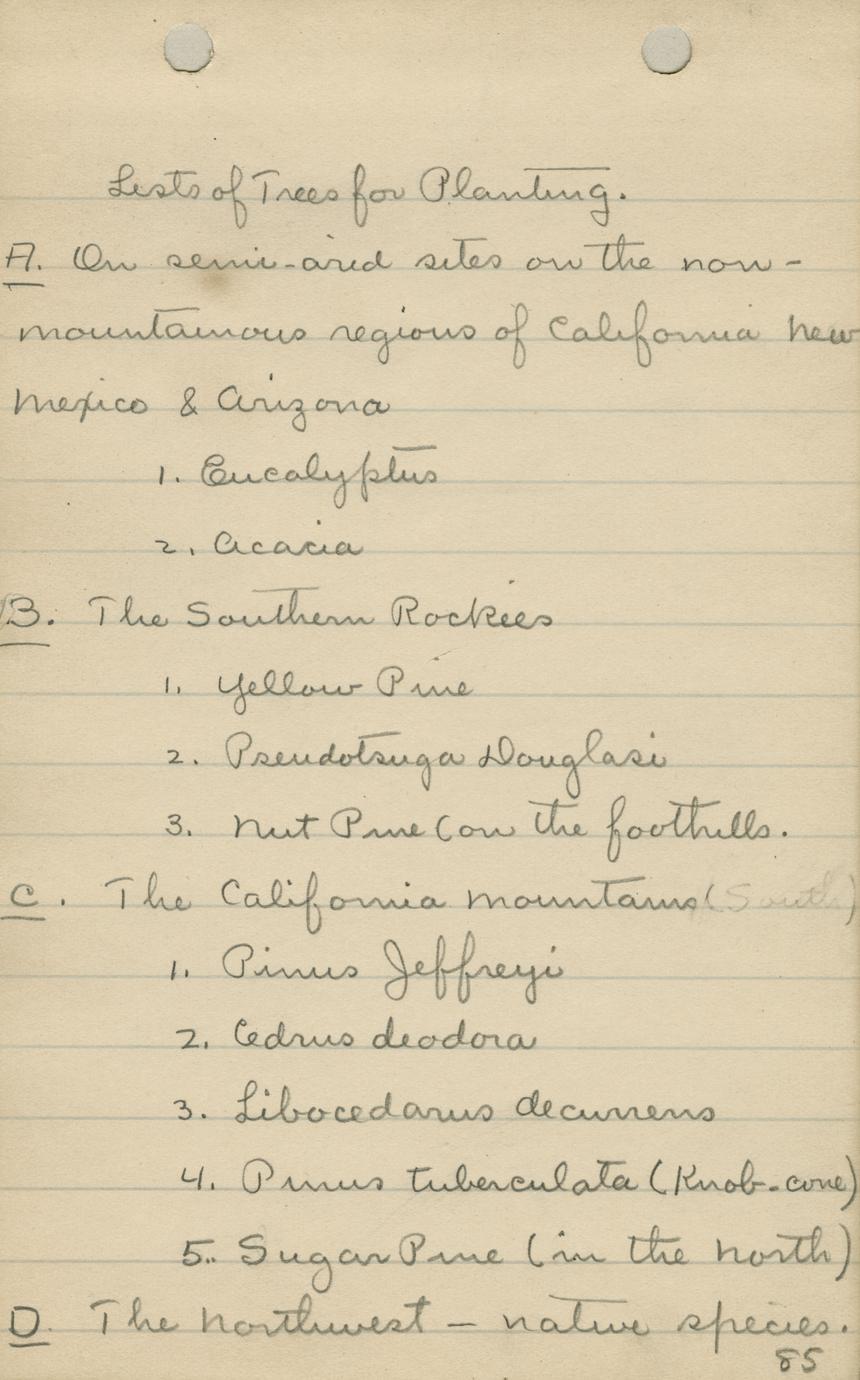 Lists of Trees for Planting.
A. On semi-arid sites on the non-
mountainous regions of California New
Mexico & Arizona
1. Eucalyptus
2. Acacia
B. The Southern Rockies
1. Yellow Pine
2. Pseudotsuga Douglasi
3. Nut Pine (on the foothills.
C. The California Mountains (South)
1. Pinus Jeffreyi
2. Cedrus deodora
3. Libocedarus decurrens
4. Pinus tuberculata (Knob-cone)
5. Sugar Pine (in the North)
D. The Northwest - native species.
85